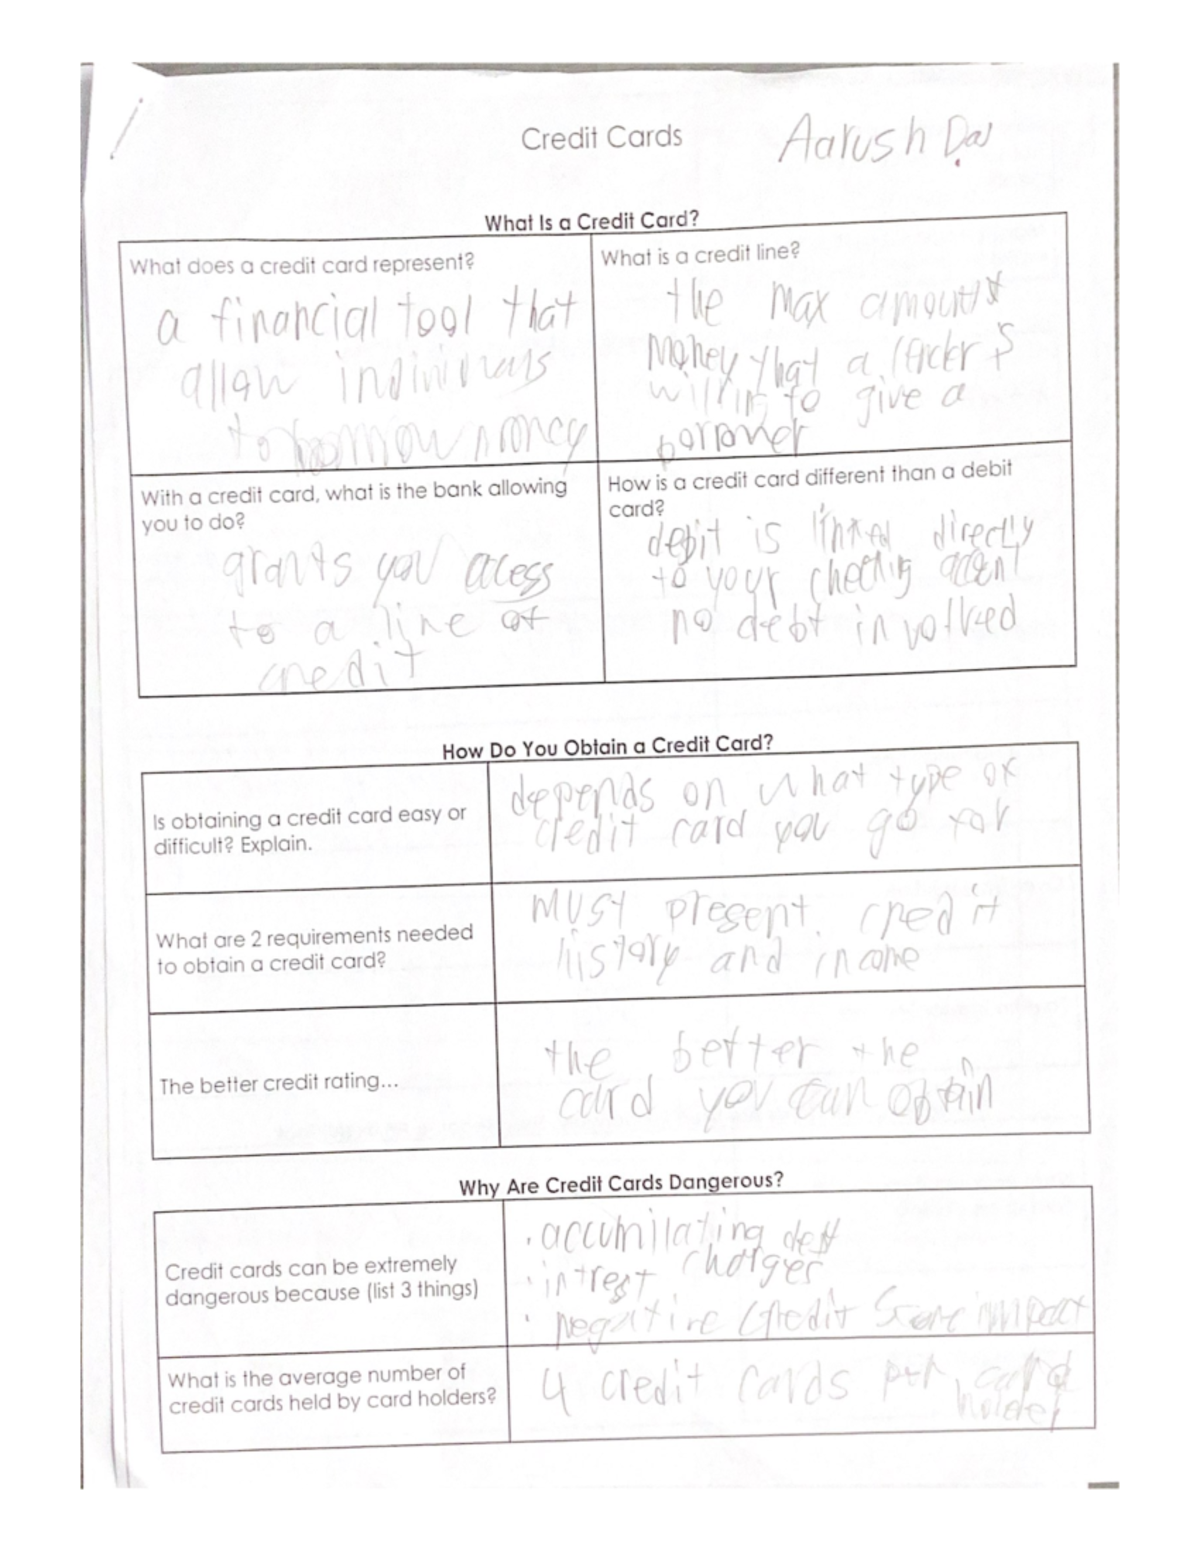 Credit Cards
Aarush Das
What Is a Credit Card?
What does a credit card represent?
a financial tool that
allow individuals
to borrow money
What is a credit line?
the max amount
money that a lender is
willing to give a
borrower
With a credit card, what is the bank allowing
you to do?
grants you acess
to a line of
credit
How is a credit card different than a debit
card?
debit is linked directly
to your checking
no debt involved
How Do You Obtain a Credit Card?
Is obtaining a credit card easy or
difficult? Explain.
depends on what type of
credit card you go for
What are 2 requirements needed
to obtain a credit card?
must present credit
history and income
The better credit rating...
the better the
card you can obtain
Why Are Credit Cards Dangerous?
Credit cards can be extremely
dangerous because (list 3 things)
· accumilating debt
· intrest charges
· negative credit score impact
What is the average number of
credit cards held by card holders?
4 credit cards per card
holder